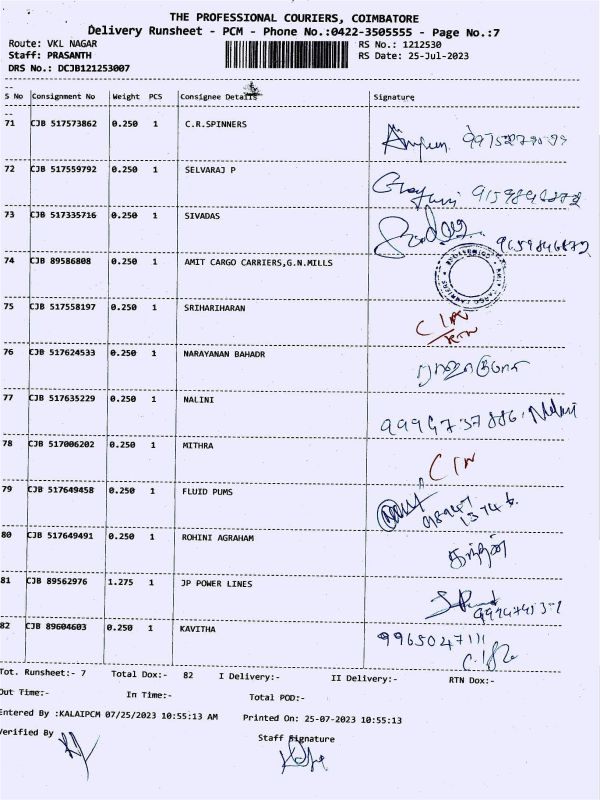 THE PROFESSIONAL COURIERS, COIMBATORE
Delivery Runsheet - PCM - Phone No.:0422-3505555 - Page No.:7
Route: VKL NAGAR RS No.: 1212530
Staff: PRASANTH RS Date: 25-Jul-2023
DRS No.: DCJB121253007
S No Consignment No Weight PCS Consignee Details Signature
71 CJB 517573862 0.250 1 C.R.SPINNERS
72 CJB 517559792 0.250 1 SELVARAJ P
73 CJB 517335716 0.250 1 SIVADAS
74 CJB 89586808 0.250 1 AMIT CARGO CARRIERS,G.N.MILLS
75 CJB 517558197 0.250 1 SRIHARIHARAN
76 CJB 517624533 0.250 1 NARAYANAN BAHADR
77 CJB 517635229 0.250 1 NALINI
78 CJB 517006202 0.250 1 MITHRA
79 CJB 517649458 0.250 1 FLUID PUMS
80 CJB 517649491 0.250 1 ROHINI AGRAHAM
81 CJB 89562976 1.275 1 JP POWER LINES
82 CJB 89604603 0.250 1 KAVITHA
9965047111
Tot. Runsheet:- 7 Total Dox:- 82 I Delivery:- II Delivery:- RTN Dox:-
Out Time:- In Time:- Total POD:-
Entered By :KALAIPCM 07/25/2023 10:55:13 AM Printed On: 25-07-2023 10:55:13
Verified By Staff Signature